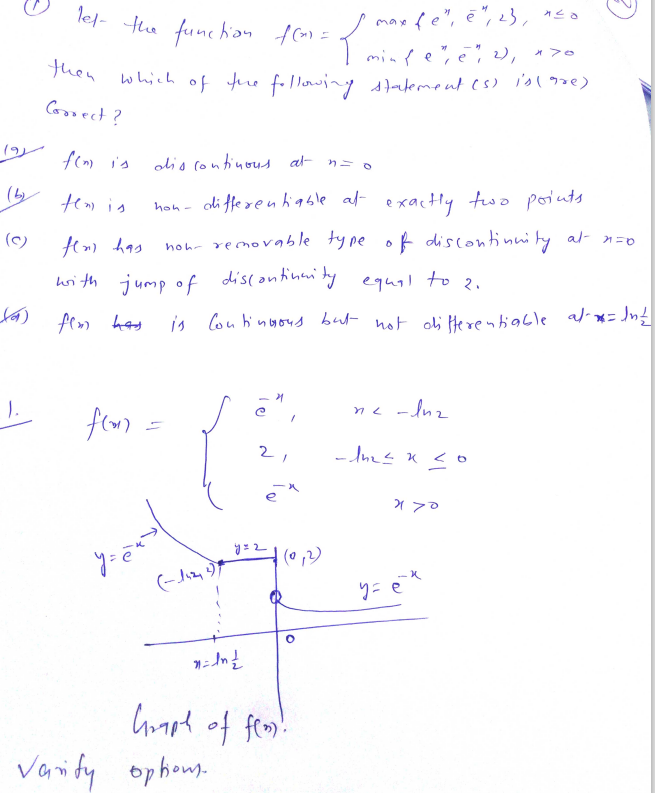 ① let the function f(x) = { max{e^x, e^-x, 2}, x≤0
min{e^x, e^-x, 2}, x>0
then which of the following statement(s) is(are)
Correct?
(a) f(x) is discontinuous at x=0
(b) f(x) is non-differentiable at exactly two points
(c) f(x) has non-removable type of discontinuity at x=0
with jump of discontinuity equal to 2.
(d) f(x) has is Continuous but not differentiable at x=ln 1/2
1. f(x) = { e^-x, x< -ln2
2, -ln2≤ x ≤0
e^-x x>0
y=2
(0,2)
y=e^-x
(-ln2, 2)
y=e^-x
0
x=ln 1/2
Graph of f(x).
Varify options.